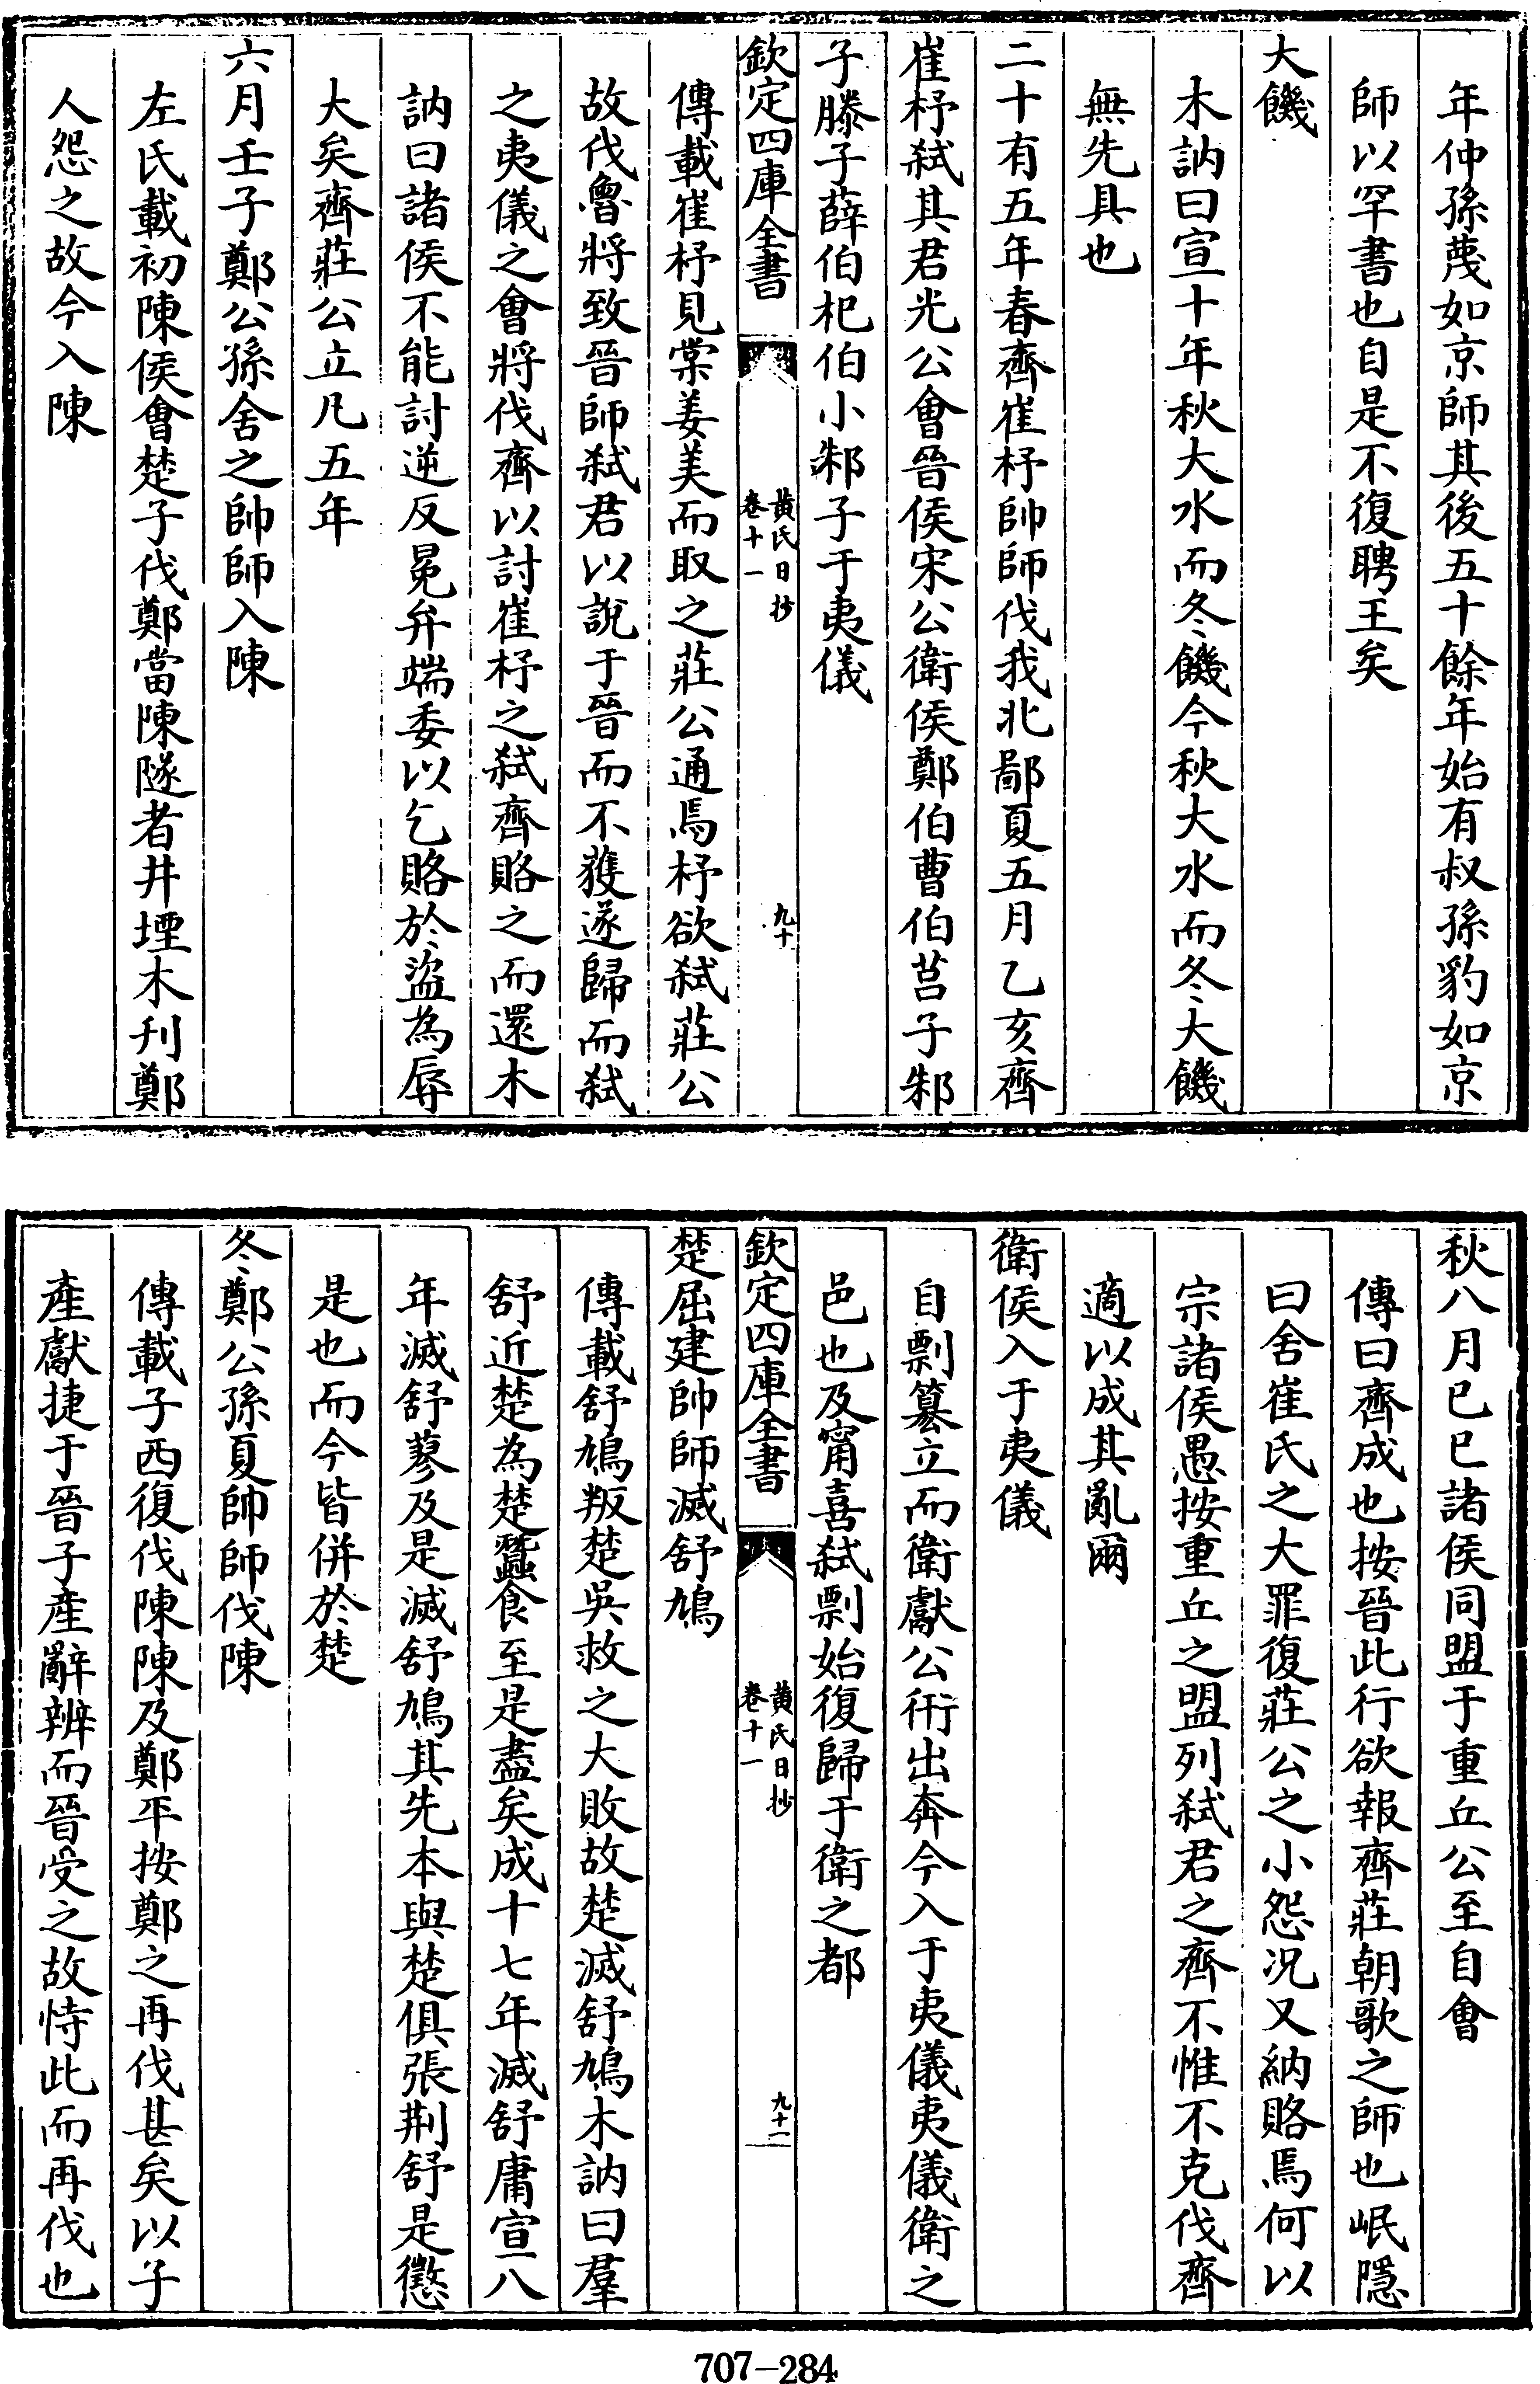 年仲孫蔑如京師其後五十餘年始有叔孫豹如京
師以罕書也自是不復聘王矣
大饑
木訥曰宣十年秋大水而冬饑今秋大水而冬大饑
無先具也
二十有五年春齊崔杼帥師伐我北鄙夏五月乙亥齊
崔杼弑其君光公會晉侯宋公衛侯鄭伯曹伯莒子邾
子滕子薛伯杞伯小邾子于夷儀
欽定四庫全書
黃氏日抄
卷十一
九十
傳載崔杼見棠姜美而取之莊公通焉杼欲弑莊公
故伐魯將致晉師弑君以說于晉而不獲遂歸而弑
之夷儀之會將伐齊以討崔杼之弑齊賂之而還木
訥曰諸侯不能討逆反冕弁端委以乞賂於盜為辱
大矣齊莊公立凡五年
六月壬子鄭公孫舍之帥師入陳
左氏載初陳侯會楚子伐鄭當陳隧者井堙木刋鄭
人怨之故今入陳
秋八月已巳諸侯同盟于重丘公至自會
傳曰齊成也按晉此行欲報齊莊朝歌之師也岷隱
曰舍崔氏之大罪復莊公之小怨況又納賂焉何以
宗諸侯愚按重丘之盟列弑君之齊不惟不克伐齊
適以成其亂爾
衛侯入于夷儀
自剽簒立而衛獻公衎出奔今入于夷儀夷儀衛之
邑也及甯喜弑剽始復歸于衛之都
欽定四庫全書
黃氏日抄
卷十一
九十一
楚屈建帥師滅舒鳩
傳載舒鳩叛楚吳救之大敗故楚滅舒鳩木訥曰羣
舒近楚為楚蠶食至是盡矣成十七年滅舒庸宣八
年滅舒蓼及是滅舒鳩其先本與楚俱張荆舒是懲
是也而今皆併於楚
冬鄭公孫夏帥師伐陳
傳載子西復伐陳陳及鄭平按鄭之再伐甚矣以子
產獻捷于晉子産辭辨而晉受之故恃此而再伐也
707-284